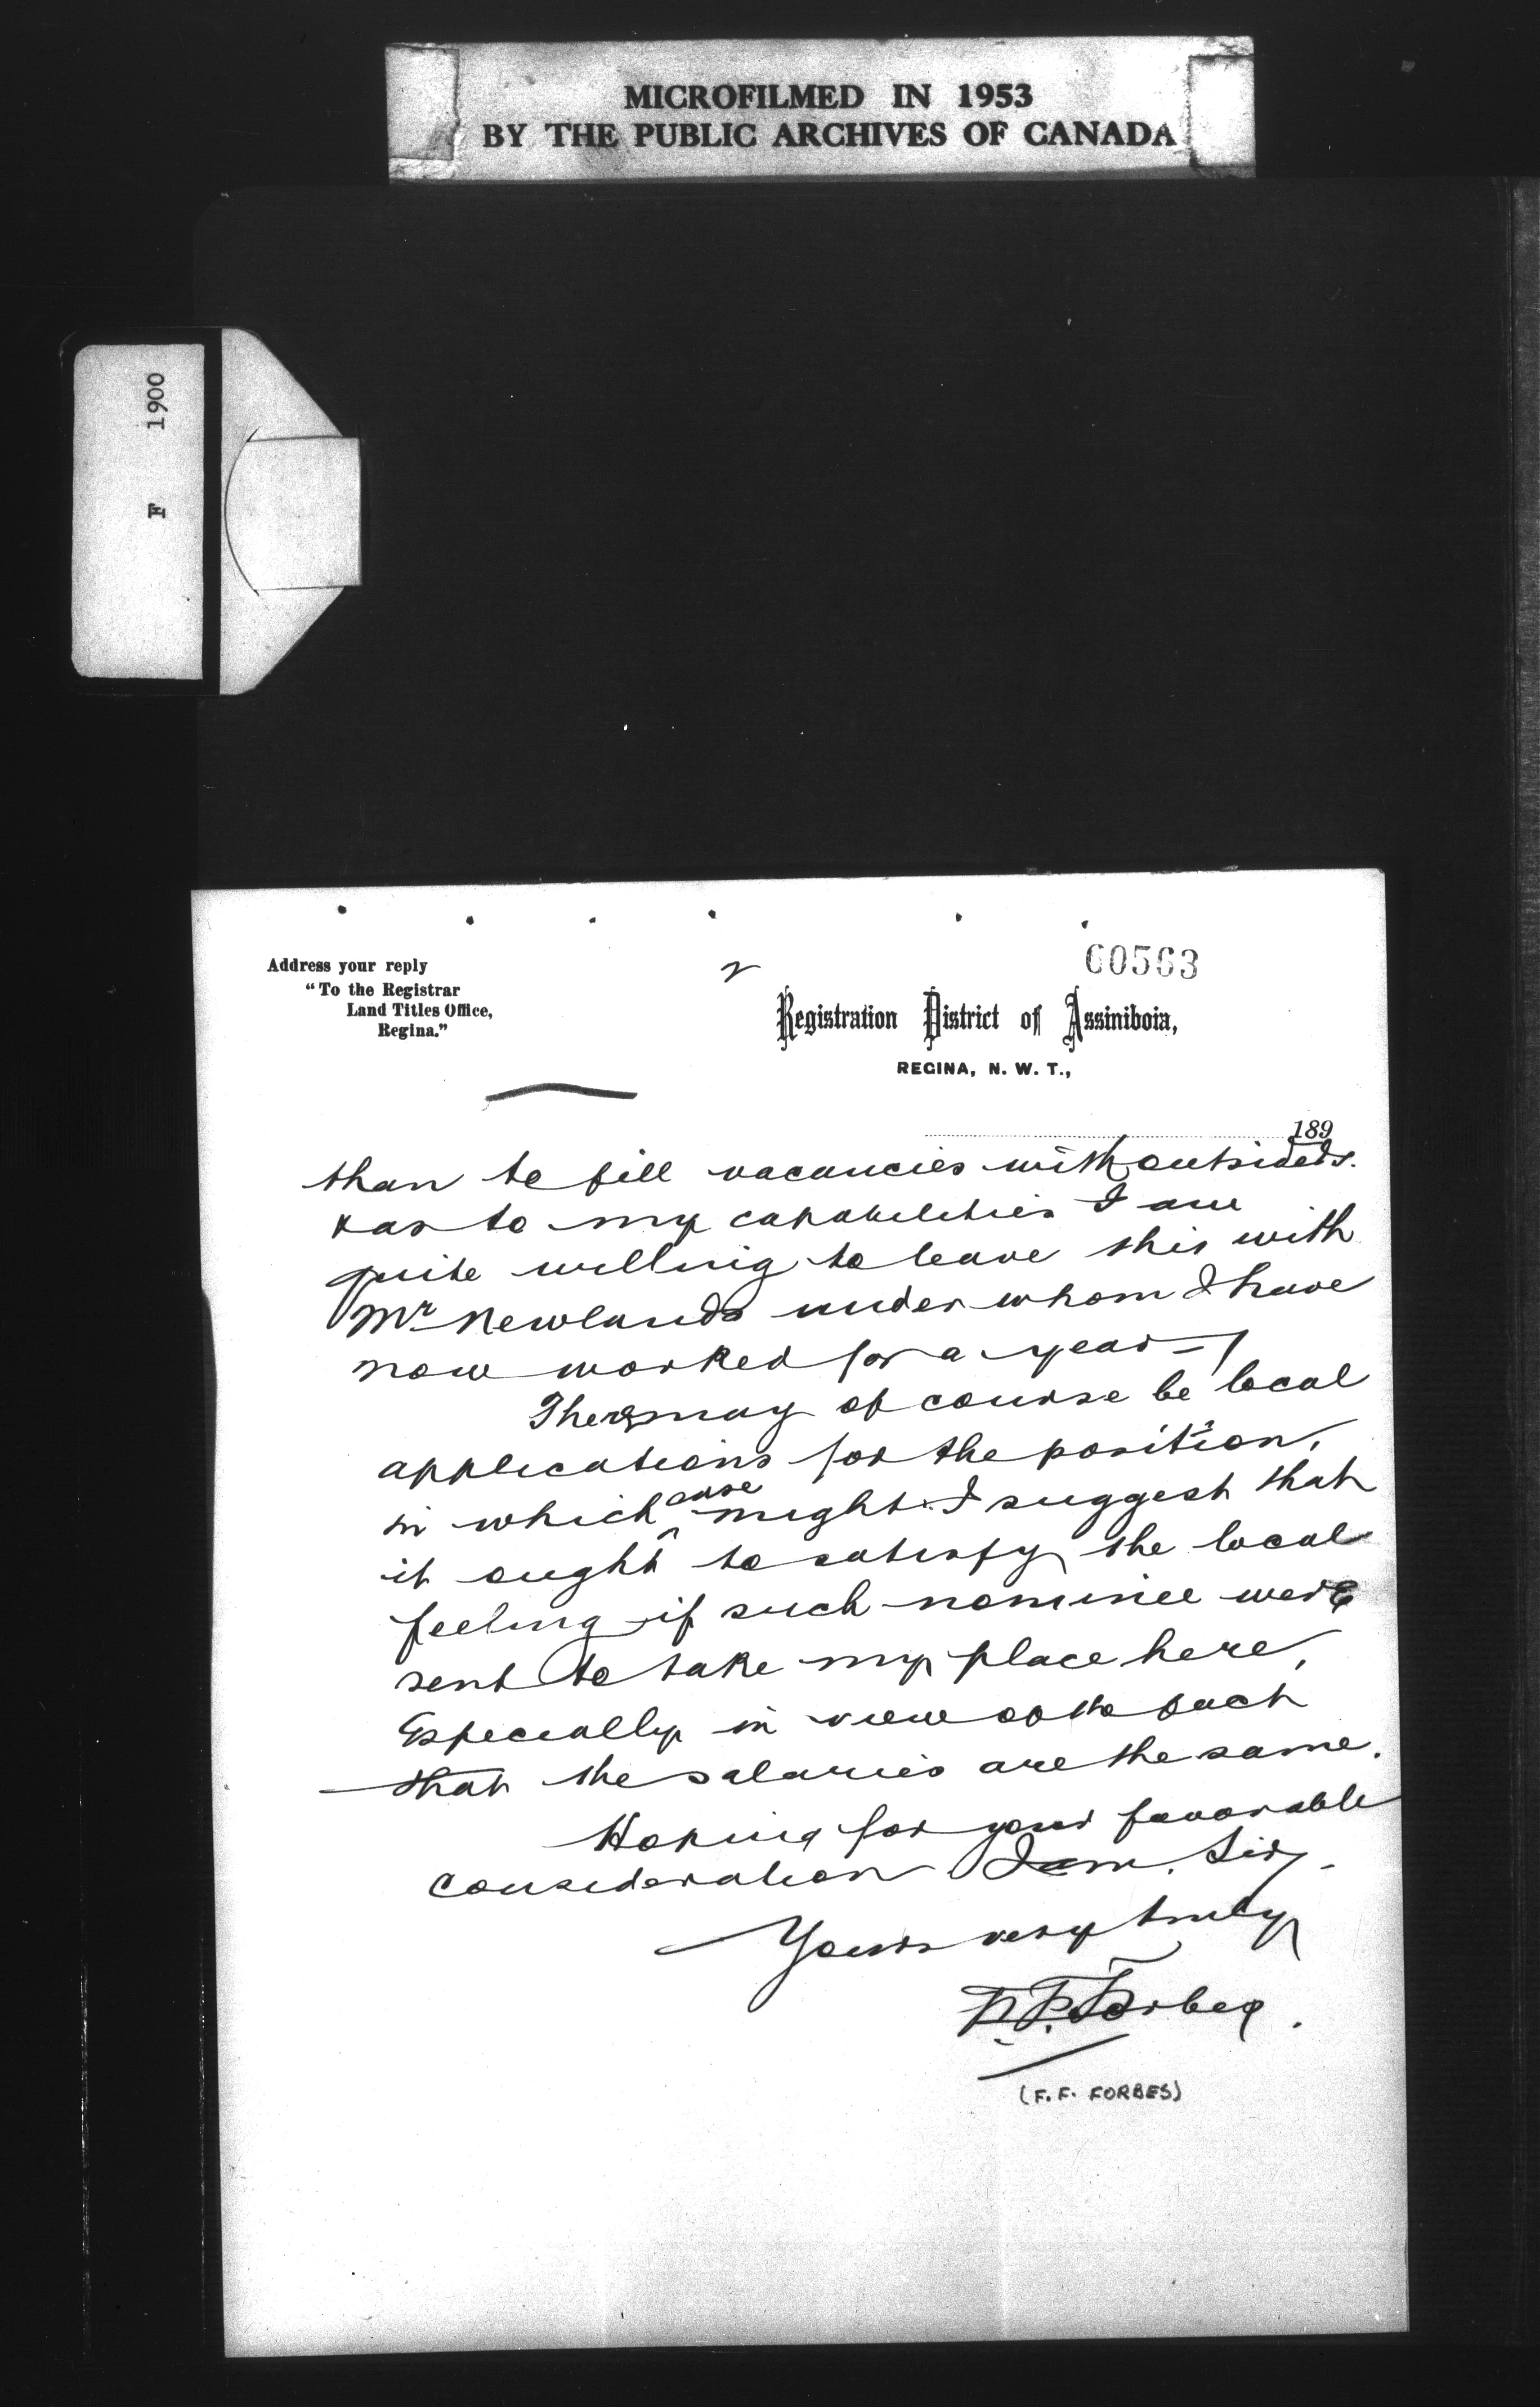 MICROFILMED IN 1953
BY THE PUBLIC ARCHIVES OF CANADA
F 1900
Address your reply
"To the Registrar
Land Titles Office,
Regina."
2
60563
Registration District of Assiniboia,
REGINA, N. W. T.,
189
than to fill vacancies with outsiders.
& as to my capabilities I am
quite willing to leave this with
Mr Newlands under whom I have
now worked for a year –
There may of course be local
applications for the position,
in which case might I suggest that
it ought to satisfy the local
feeling if such nominee were
sent to take my place here,
Especially in view of the fact
that the salaries are the same.
Hoping for your favorable
consideration I am, Sir,
Yours very truly
F. F. Forbes.
(F. F. FORBES)